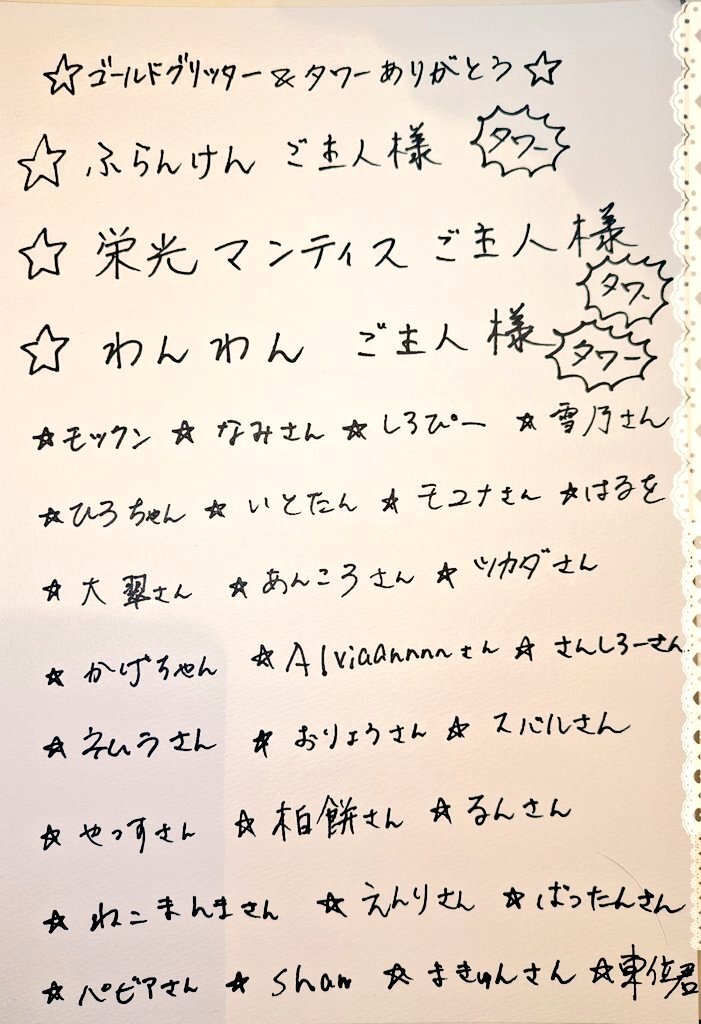 ☆ゴールドグリッター&タワーありがとう☆
☆ふらんけん ご主人様 タワー
☆栄光マンティス ご主人様 タワー
☆わんわん ご主人様 タワー
☆モックン ☆なみさん ☆しろぴー ☆雪乃さん
☆ひろちゃん ☆いとたん ☆モユナさん ☆はるを
☆大翠さん ☆あんころさん ☆ツカダさん
☆かげちゃん ☆Alviaannnnさん ☆さんしろーさん
☆ネムラさん ☆おりょうさん ☆スバルさん
☆やっすさん ☆柏餅さん ☆るんさん
☆ねこまんまさん ☆えんりさん ☆ばったんさん
☆パピアさん ☆sham ☆まきゅんさん ☆東位君